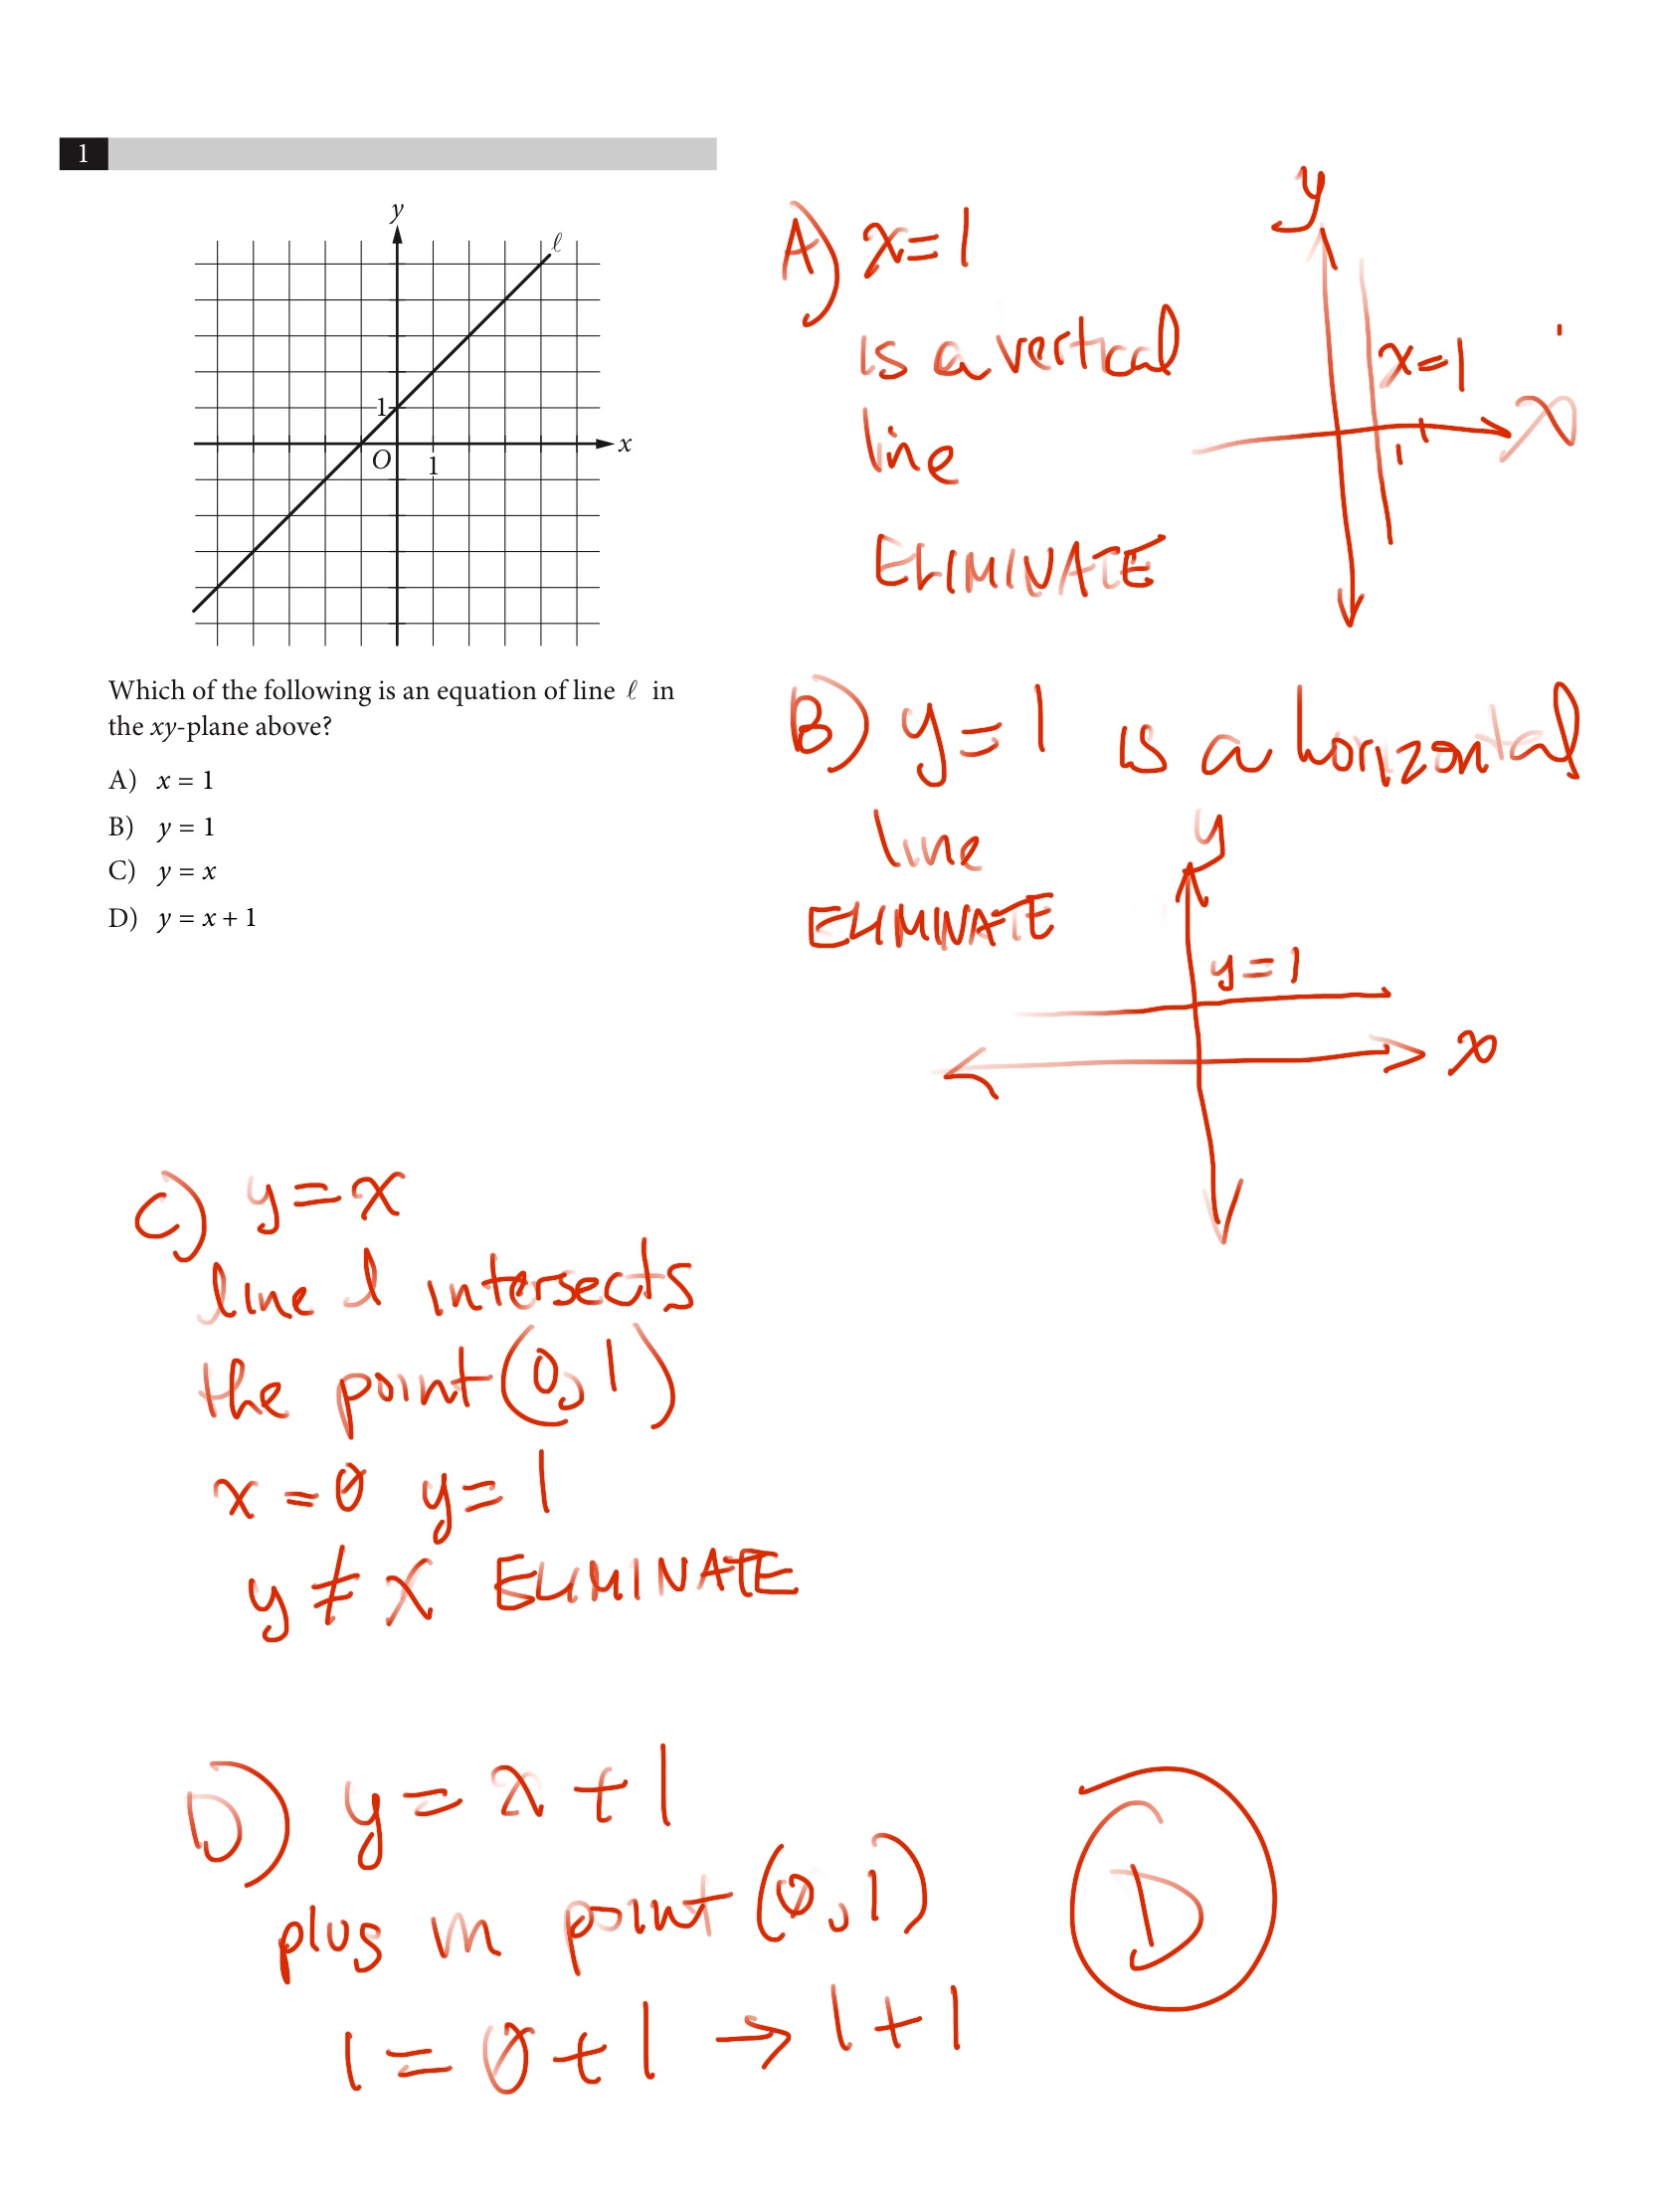 1
y
ℓ
1
x
O
1
Which of the following is an equation of line ℓ in
the xy-plane above?
A) x = 1
B) y = 1
C) y = x
D) y = x + 1
A) x=1
is a vertical
line
ELIMINATE
y
x=1
x
1
B) y=1 is a horizontal
line
ELIMINATE
y
y=1
x
C) y=x
line l intersects
the point (0,1)
x=0 y=1
y≠x ELIMINATE
D) y=x+1
plus in point (0,1)
1=0+1 → 1+1
D